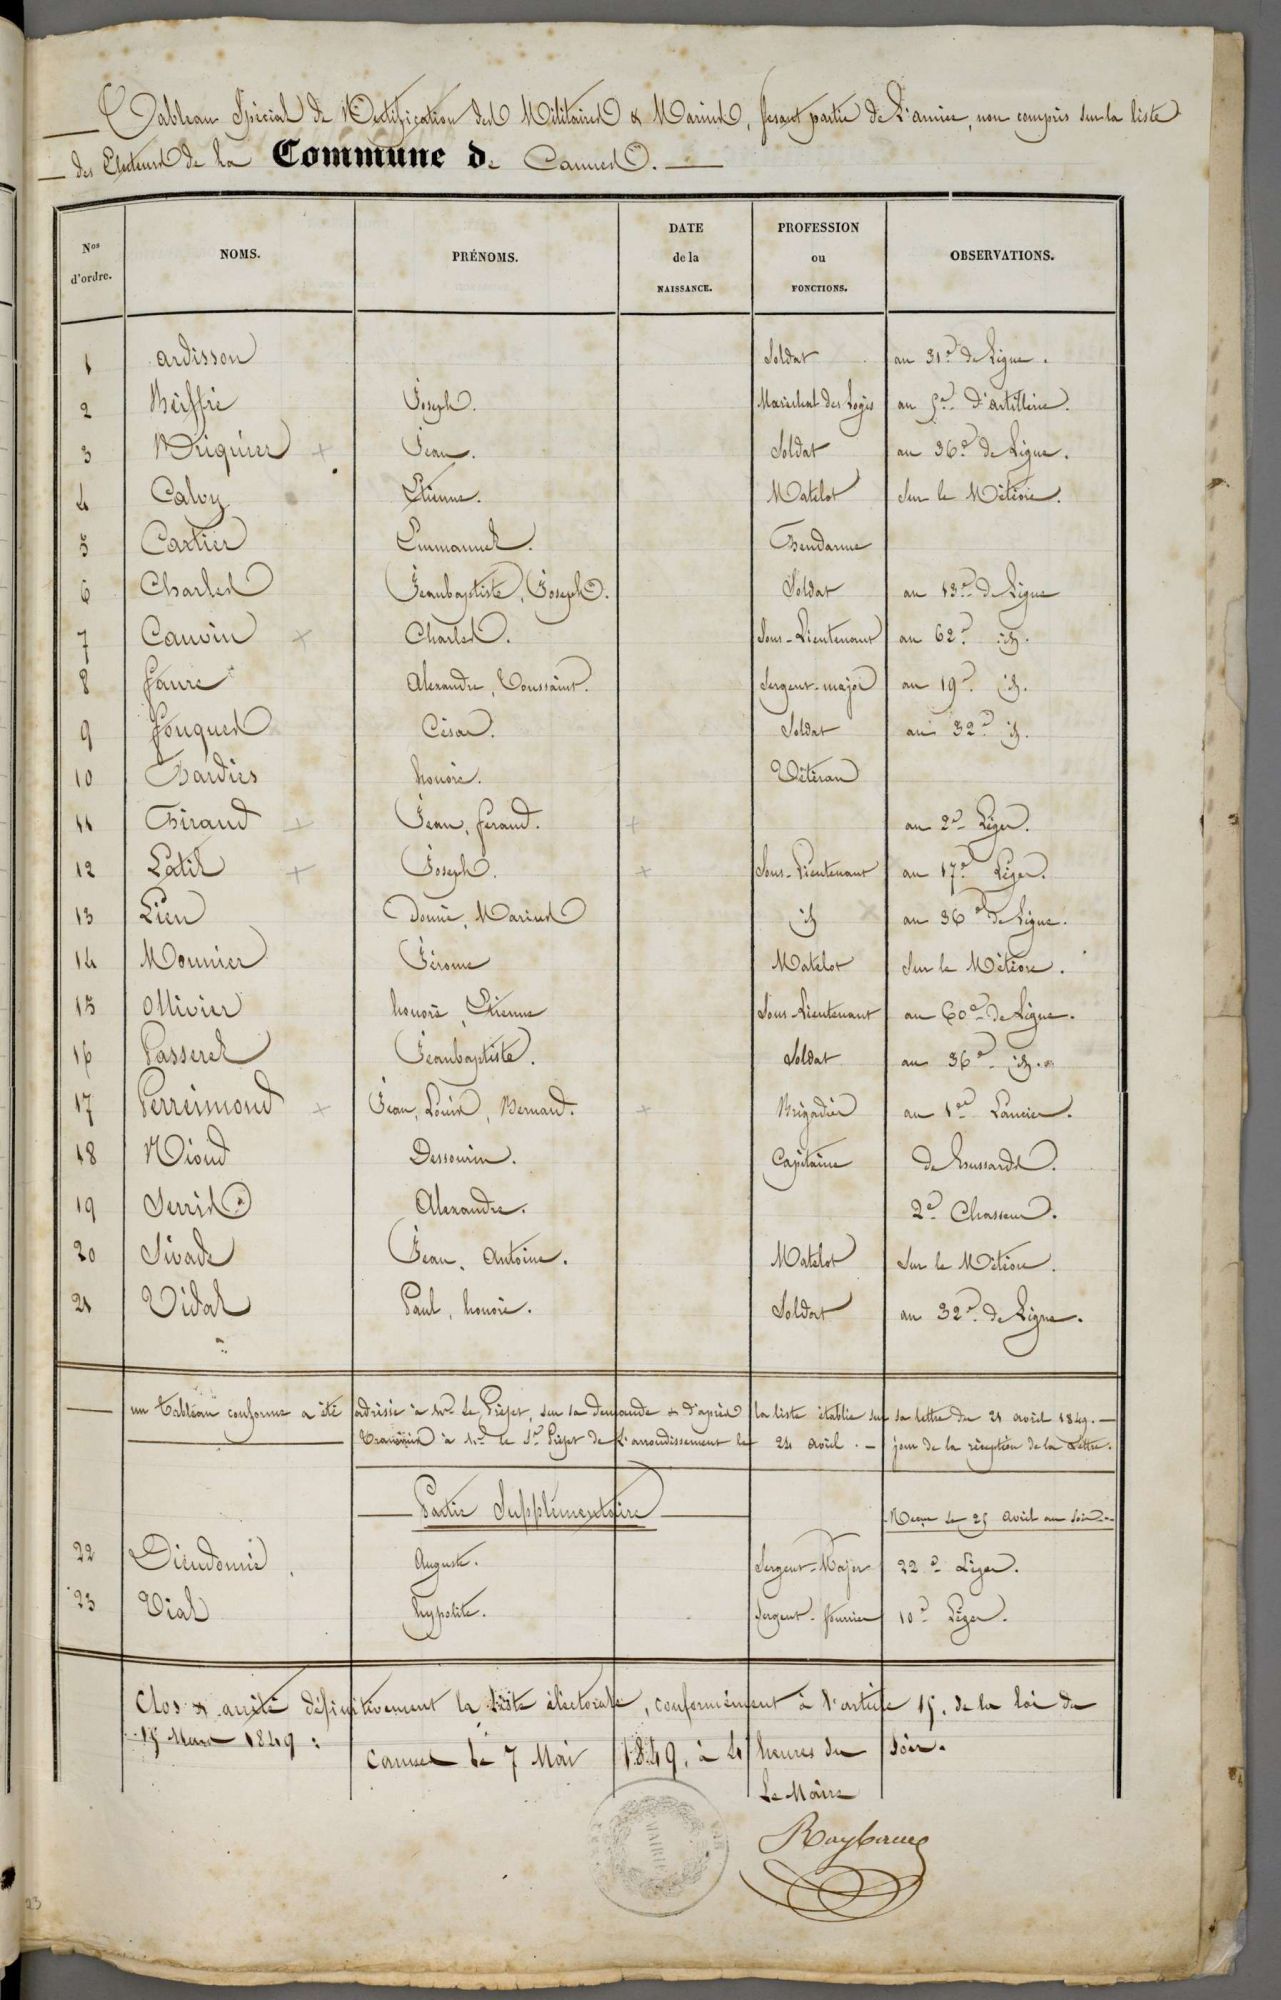 Tableau Spécial de Rectification des Militaires & Marins, fesant partie de l'armée, non compris sur la liste
des Electeurs de la Commune de Cannes.
Nos d'ordre. NOMS. PRÉNOMS. DATE de la NAISSANCE. PROFESSION ou FONCTIONS. OBSERVATIONS.
1 Ardisson Soldat au 31e de Ligne.
2 Béiffre Joseph. Maréchal des Logis au 5e d'artillerie.
3 Briquier Jean. Soldat au 36e de Ligne.
4 Calvy Etienne. Matelot Sur le Météore.
5 Cartier Emmanuel. Gendarme
6 Charles Jeanbaptiste, Joseph. Soldat au 13e de Ligne
7 Cauvin Charles. Sous-Lieutenant au 62e id.
8 faure Alexandre, Toussaint. Sergent-major au 19e id.
9 fouques César. Soldat au 32e id.
10 Gardies honoré. Vétéran
11 Giraud Jean, féraud. au 2e Léger.
12 Latil Joseph. Sous-Lieutenant au 17e Léger.
13 Lieu Donné, Marius id au 36e de Ligne.
14 Mounier Jérome Matelot Sur le Météore.
15 Ollivier honoré, Etienne Sous-Lieutenant au 60e de Ligne.
16 Passerel Jeanbaptiste. Soldat au 36e id.
17 Perreimond Jean, Louis, Bernard. Brigadier au 1er Lancier.
18 Rioud Capitaine de hussards.
19 Serris Alexandre. 2e Chasseur.
20 Sivade Jean, Antoine. Matelot Sur le Météore.
21 Vidal Paul, honoré. Soldat au 32e de Ligne.
un tableau conforme a été adressé à Mr Le Préfet, sur sa demande & d'après la liste établie sur sa lettre du 21 avril 1849.
Transmis à Mr le Sr Préfet de l'arrondissement le 24 avril. jour de la réception de la Lettre.
Partie Supplémentaire
Reçu le 25 Avril au soir
22 Dieudonné Auguste. Sergent-Major 22e Léger.
23 Vial hypolite. Sergent-fourrier 10e Léger.
Clos & arrêté définitivement la liste électorale, conformément à l'article 15, de la loi du
15 Mars 1849:
Cannes le 7 Mai 1849, à 4 heures du soir.
Le Maire
MAIRIE
VAR
23